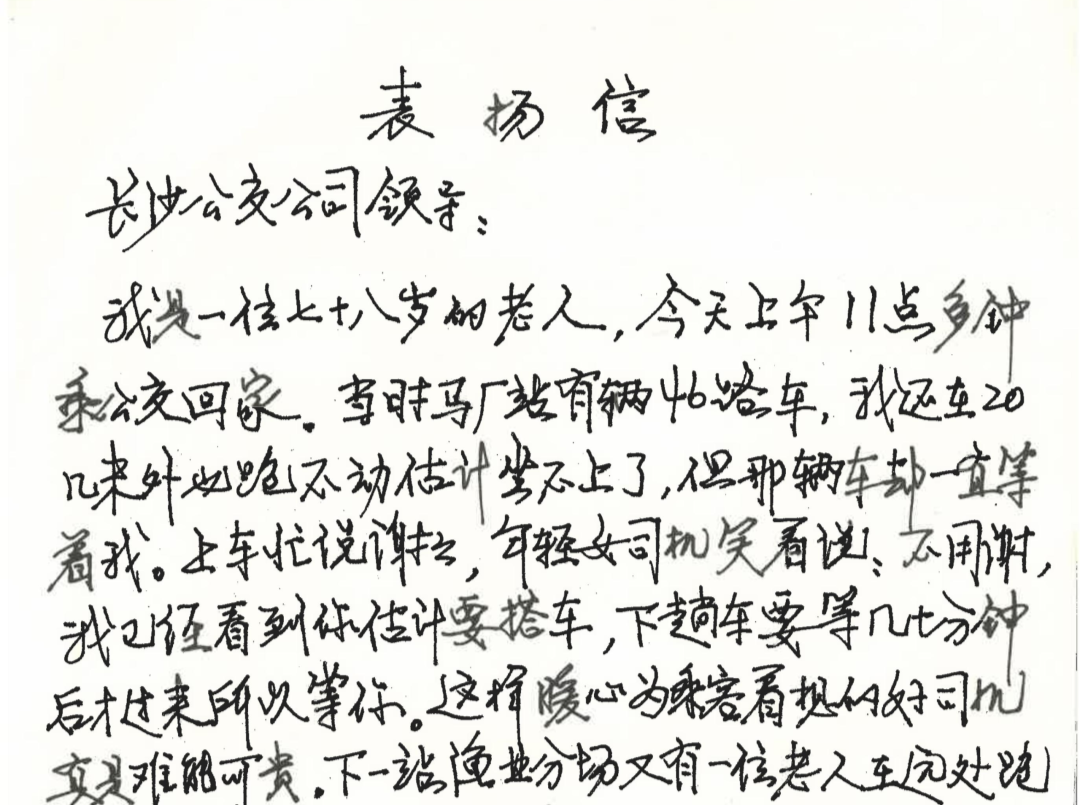 表扬信
长沙公交公司领导:
我是一位七十八岁的老人,今天上午11点多钟
乘公交回家。当时马厂站有辆46路车,我还在20
几米外也跑不动估计坐不上了,但那辆车却一直等
着我。上车忙说谢谢,年轻女司机笑着说:不用谢,
我已经看到你估计要搭车,下趟车要等几十分钟
后才过来所以等你。这样暖心为乘客着想的好司机
真是难能可贵。下一站渔业分场又有一位老人在远处跑